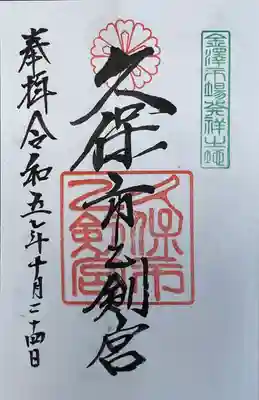 金澤市場発祥之地
久保市乙剣宮
久保市乙剣宮
奉拝令和五年十月二十四日